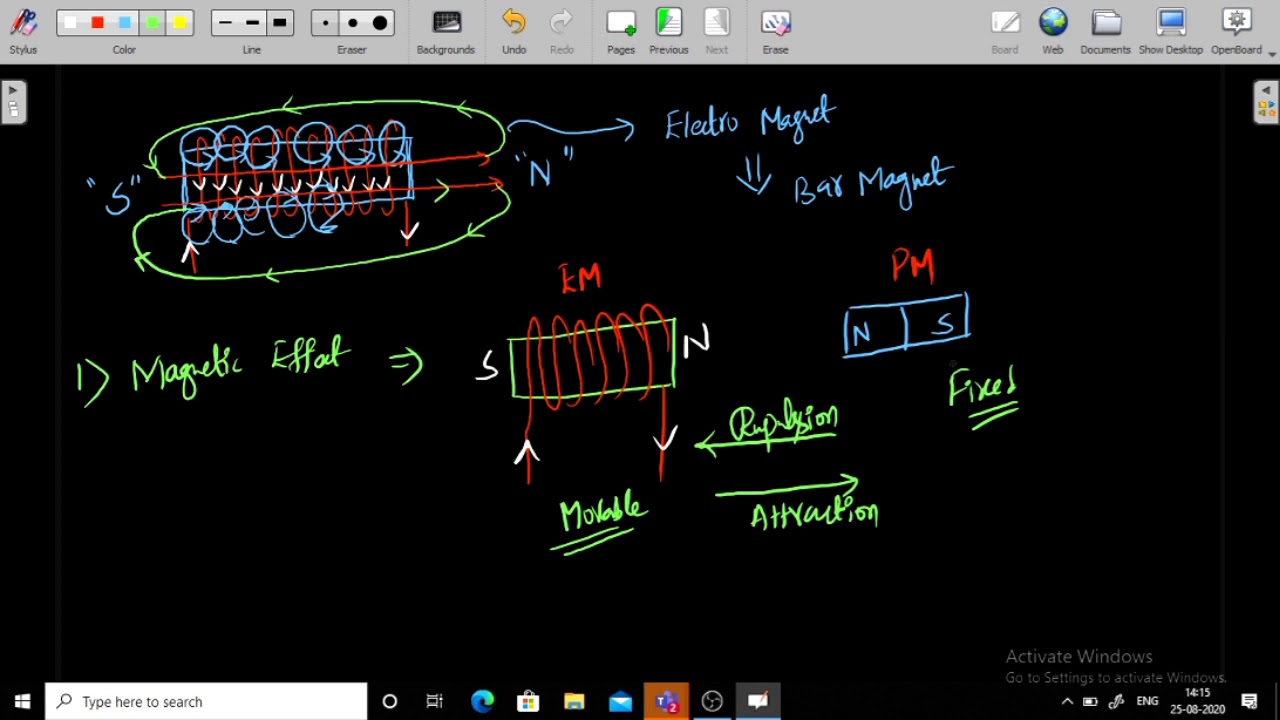 Stylus
Color
Line
Eraser
Backgrounds
Undo
Redo
Pages
Previous
Next
Erase
Board
Web
Documents
Show Desktop
OpenBoard
Electro Magnet
"S"
"N"
Bar Magnet
EM
PM
1) Magnetic Effect ⇒
S
N
N
S
Fixed
Repulsion
Movable
Attraction
Activate Windows
Go to Settings to activate Windows.
Type here to search
ENG
14:15
25-08-2020